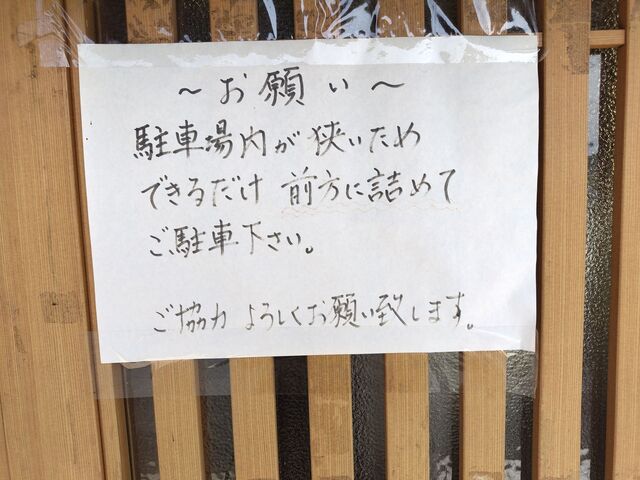 ～お願い～
駐車場内が狭いため
できるだけ 前方に詰めて
ご駐車下さい。
ご協力 よろしくお願い致します。